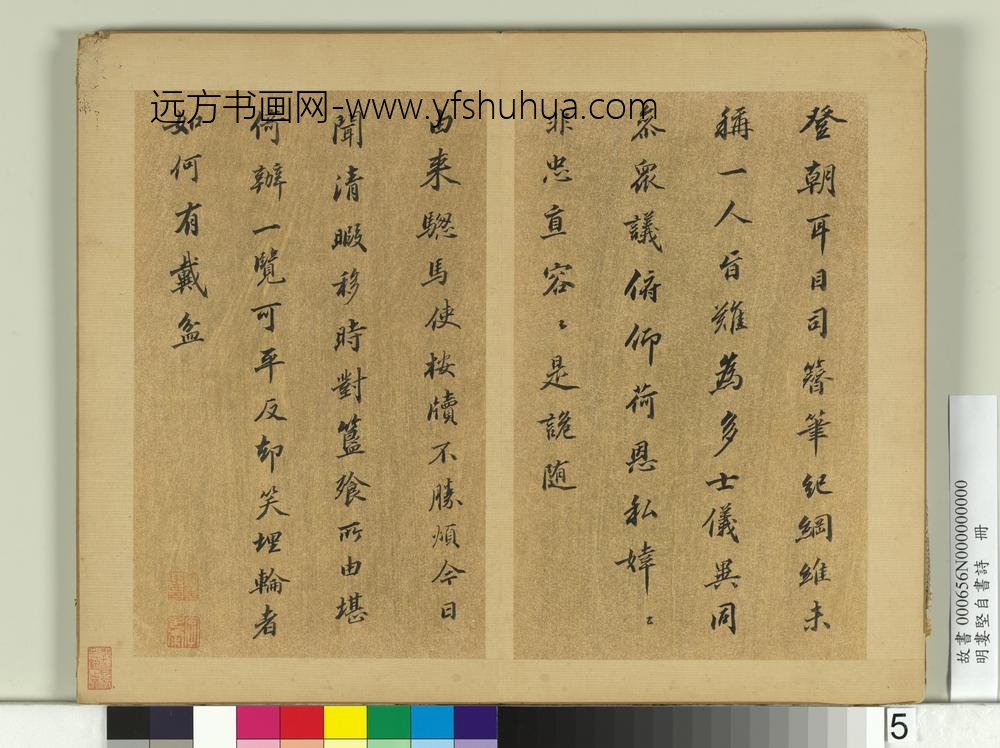 远方书画网-www.yfshuhua.com
登朝耳目司簪筆紀綱維未
稱一人旨難為多士儀異同
恭眾議俯仰荷恩私婞〻
非忠直容〻是詭随
由来驄馬使桉牘不勝煩今日
聞清暇移時對簋飱所由堪
倚辦一覽可平反却笑埋輪者
如何有戴盆
故書 000656N000000000
明婁堅自書詩 冊
5